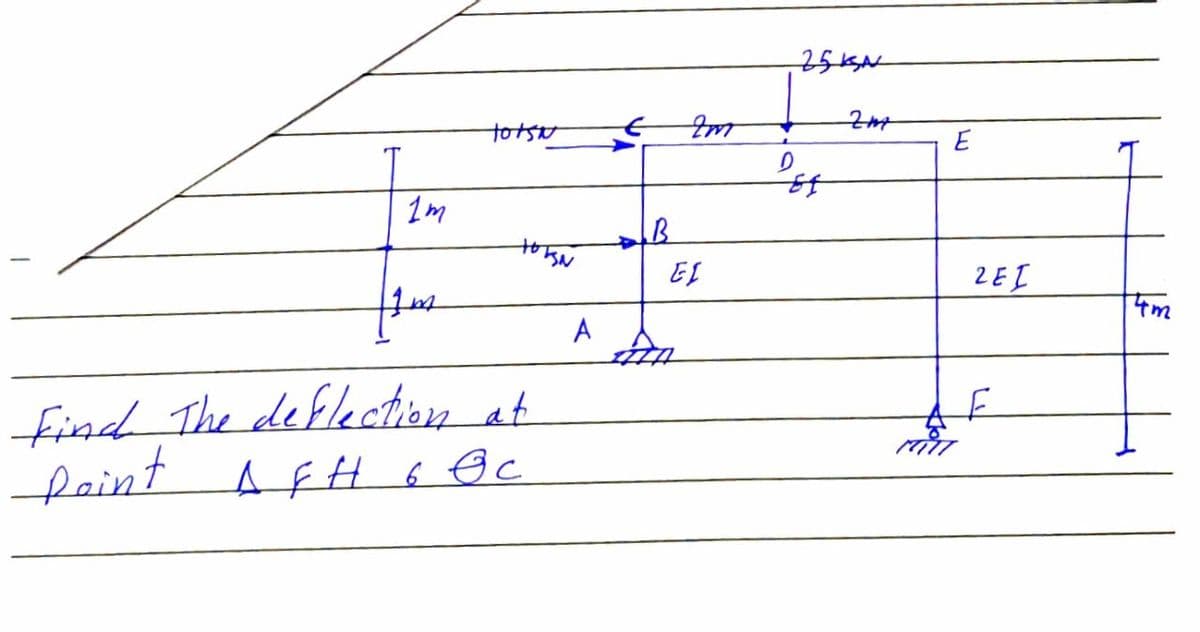 25 kN
10 kN C 2m 2m E
D
EI
1m
10 kN B
EI 2EI
1m 4m
A
F
Find The deflection at
Point Δ F H & θc